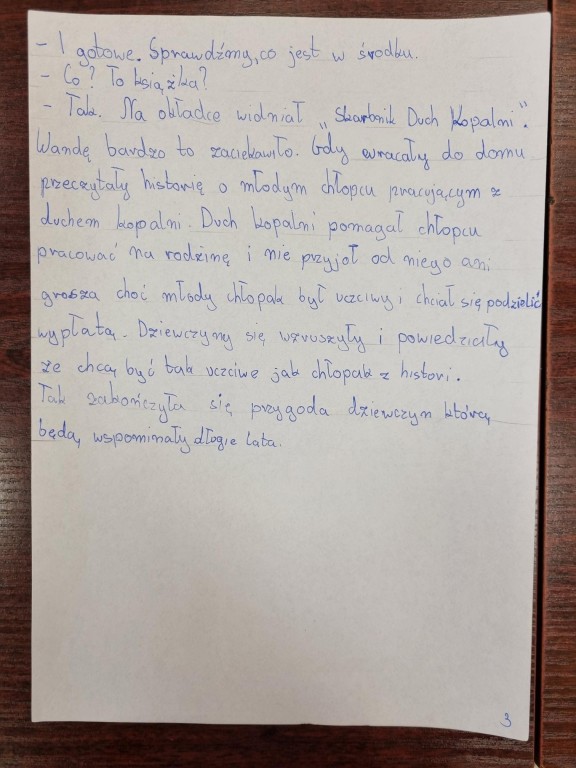 - I gotowe. Sprawdźmy, co jest w środku.
- Co? To książka?
- Tak. Na okładce widniał „Skarbnik Duch Kopalni".
Wandę bardzo to zaciekawiło. Gdy wracały do domu
przeczytały historię o młodym chłopcu pracującym z
duchem kopalni. Duch kopalni pomagał chłopcu
pracować na rodzinę i nie przyjoł od niego ani
grosza choć młody chłopak był uczciwy i chciał się podzielić
wypłatą. Dziewczyny się wzruszyły i powiedziały
że chcą być tak uczciwe jak chłopak z histori.
Tak zakończyła się przygoda dziewczyn którą
będą wspominały długie lata.
3